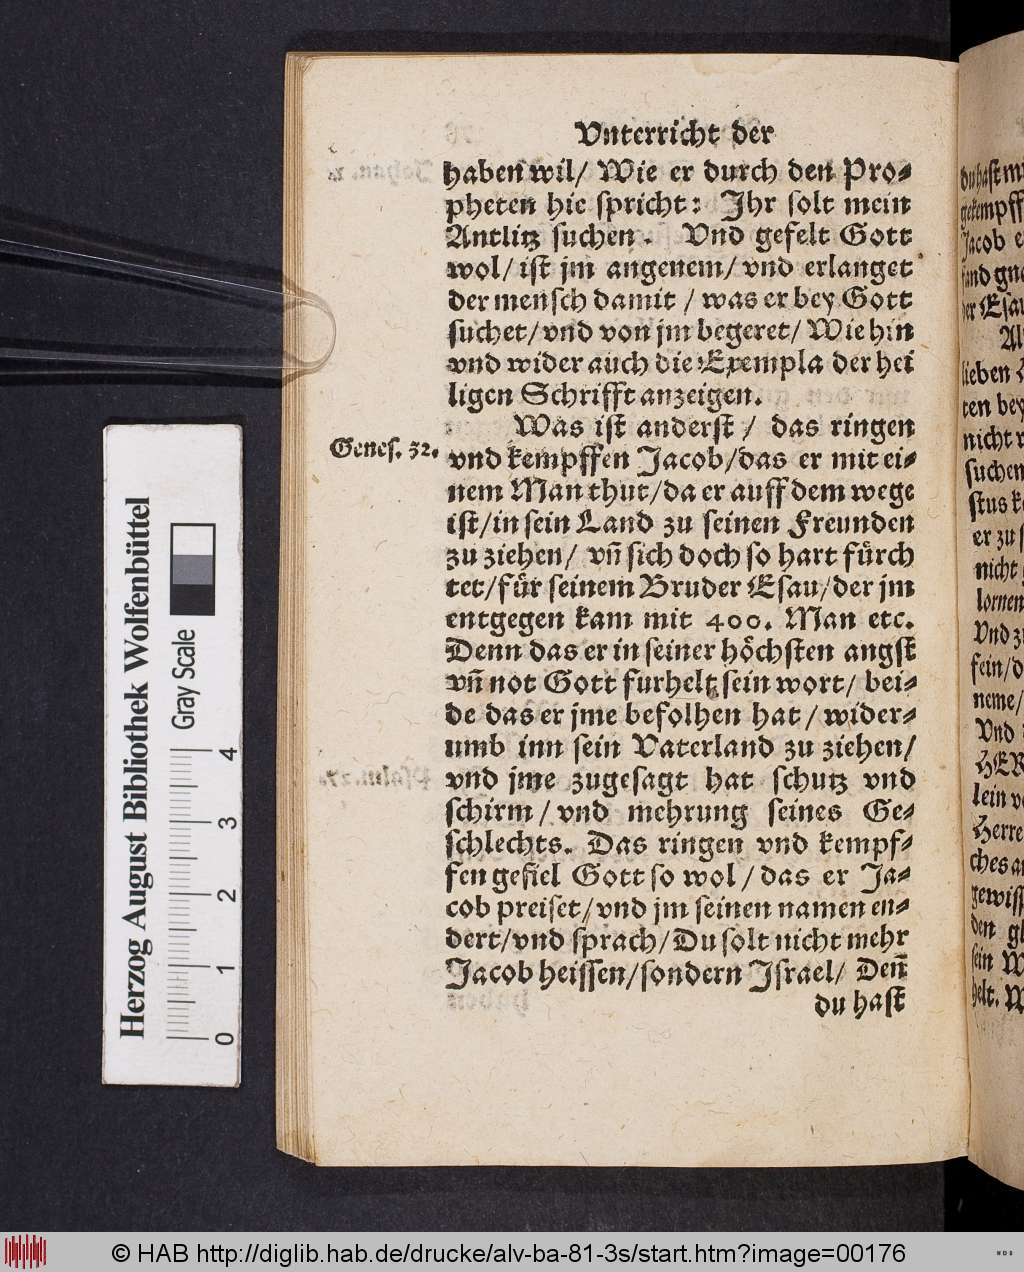 Vnterricht der
haben wil/ Wie er durch den Pro-
pheten hie spricht: Jhr solt mein
Antlitz suchen. Vnd gefelt Gott
wol/ ist jm angenem/ vnd erlanget
der mensch damit / was er bey Gott
suchet/ vnd von jm begeret/ Wie hin
vnd wider auch die Exempla der hei
ligen Schrifft anzeigen.
Was ist anderst / das ringen
Genes. 32.
vnd kempffen Jacob/ das er mit ei-
nem Man thut/ da er auff dem wege
ist/ in sein Land zu seinen Freunden
zu ziehen/ vñ sich doch so hart fürch
tet/ für seinem Bruder Esau/ der jm
entgegen kam mit 400. Man etc.
Denn das er in seiner höchsten angst
vñ not Gott furhelt sein wort/ bei-
de das er jme befolhen hat / wider-
umb inn sein Vaterland zu ziehen/
vnd jme zugesagt hat schutz vnd
schirm / vnd mehrung seines Ge-
schlechts. Das ringen vnd kempf-
fen gefiel Gott so wol / das er Ja-
cob preiset/ vnd jm seinen namen en-
dert/ vnd sprach/ Du solt nicht mehr
Jacob heissen/ sondern Jsrael/ Deñ
du hast
du hast
gekempff
Jacob
der Esau
lieben
ten bey
suchen
er zu
nicht
lornen
fein/
neme/
Vnd
sein
helt.
Herzog August Bibliothek Wolfenbüttel
Gray Scale
0 1 2 3 4
© HAB http://diglib.hab.de/drucke/alv-ba-81-3s/start.htm?image=00176